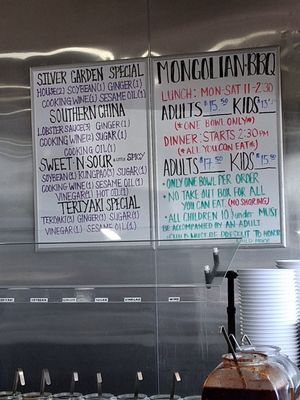 SILVER GARDEN SPECIAL
HOUSE(2) SOYBEAN(1) GINGER(1)
COOKING WINE(1) SESAME OIL(1)
SOUTHERN CHINA
LOBSTER SAUCE(3) GINGER(1)
COOKING WINE(2) SUGAR(1)
COOKING OIL(1)
SWEET-N-SOUR A LITTLE SPICY
SOYBEAN(1) KINGPAO(1) SUGAR(1)
COOKING WINE(1) SESAME OIL(1)
VINEGAR(1) HOT OIL(1)
TERIYAKI SPECIAL
TERIYAKI(2) GINGER(1) SUGAR(1)
VINEGAR(1) SESAME OIL(1)
MONGOLIAN-BBQ
LUNCH: MON-SAT 11-2:30
ADULTS KIDS
(*ONE BOWL ONLY*)
DINNER: STARTS 2:30PM
(*ALL YOU CAN EAT*)
ADULTS KIDS
•ONLY ONE BOWL PER ORDER
•NO TAKE OUT BOX FOR ALL
YOU CAN EAT (NO SHARING)
•ALL CHILDREN 10/under MUST
BE ACCOMPANIED BY AN ADULT